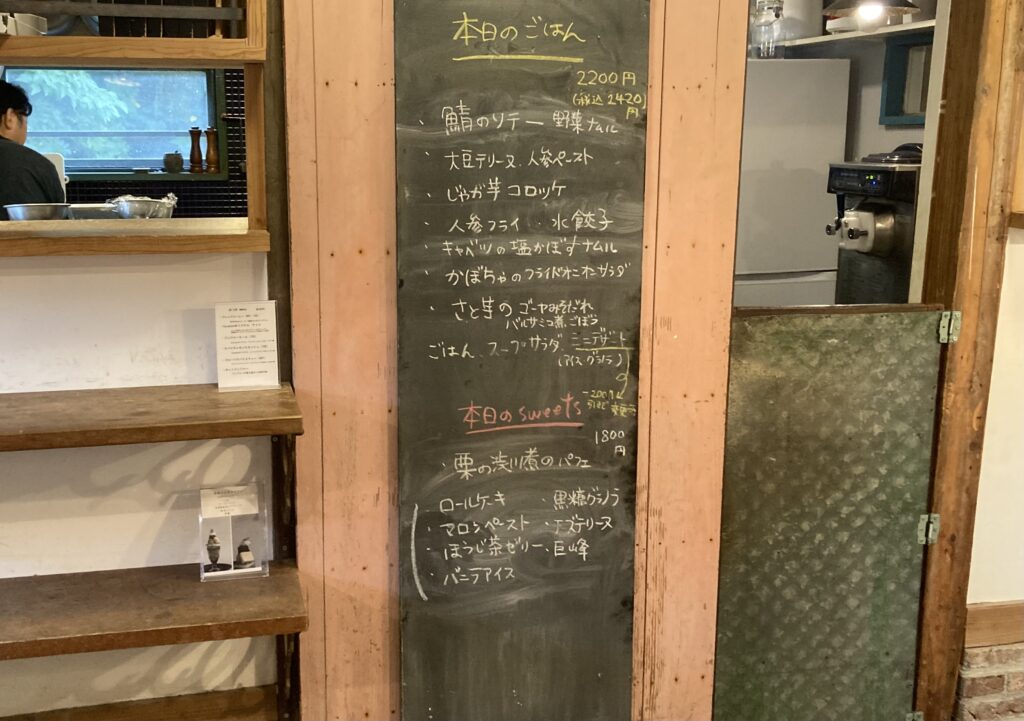 本日のごはん
2200円
(税込2420円)
・鯖のソテー 野菜ナムル
・大豆テリーヌ、人参ペースト
・じゃが芋コロッケ
・人参フライ ・水餃子
・キャベツの塩かぼすナムル
・かぼちゃのフライドオニオンサラダ
・さと芋のゴーヤみそだれ
バルサミコ煮ごぼう
ごはん、スープ、サラダ、ミニデザート
(アイス・グラノラ)
本日のsweets
1800円
・栗の渋川煮のパフェ
ロールケーキ ・黒糖グラノラ
・マロンペースト ・チーズテリーヌ
・ほうじ茶ゼリー、巨峰
・バニラアイス